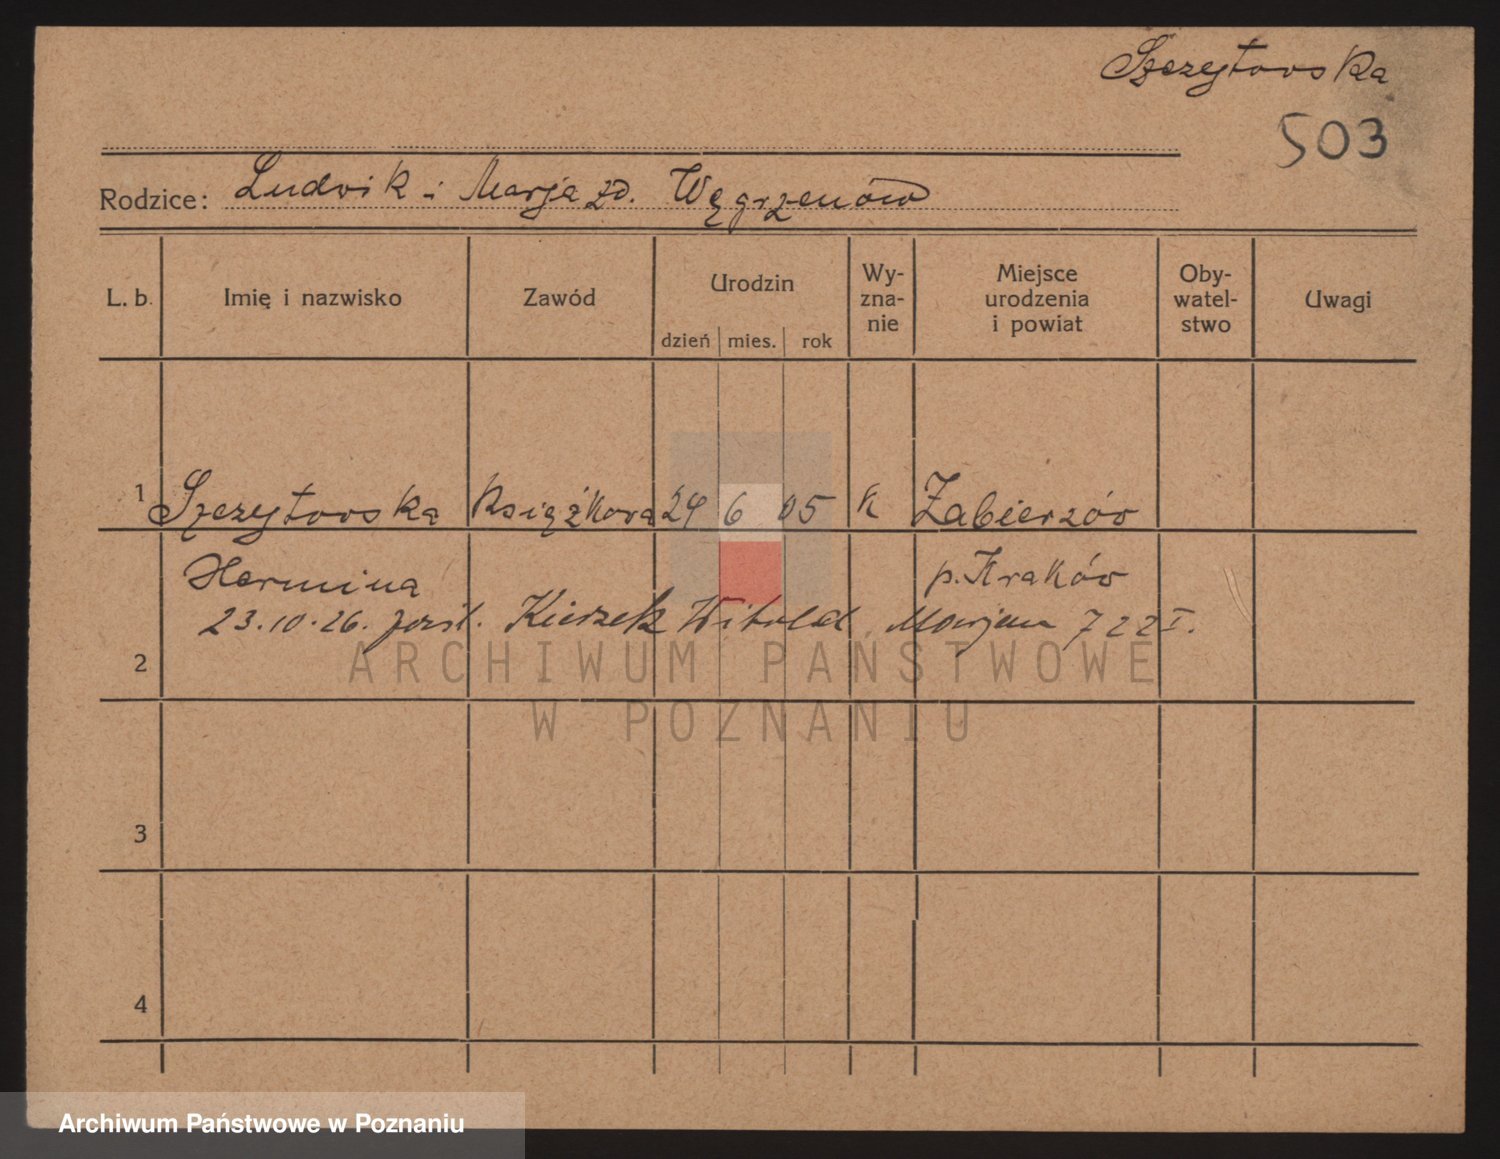 Szczytowska
503
Rodzice: Ludwik i Marja zd. Węgrzenów
L. b. Imię i nazwisko Zawód Urodzin dzień mies. rok Wy-zna-nie Miejsce urodzenia i powiat Oby-watel-stwo Uwagi
1 Szczytowska Książkowa 24 6 05 K Zabierzów
Hermina p. Kraków
23.10.26. Witold Marjan 722 I.
2
ARCHIWUM PAŃSTWOWE
W POZNANIU
3
4
Archiwum Państwowe w Poznaniu